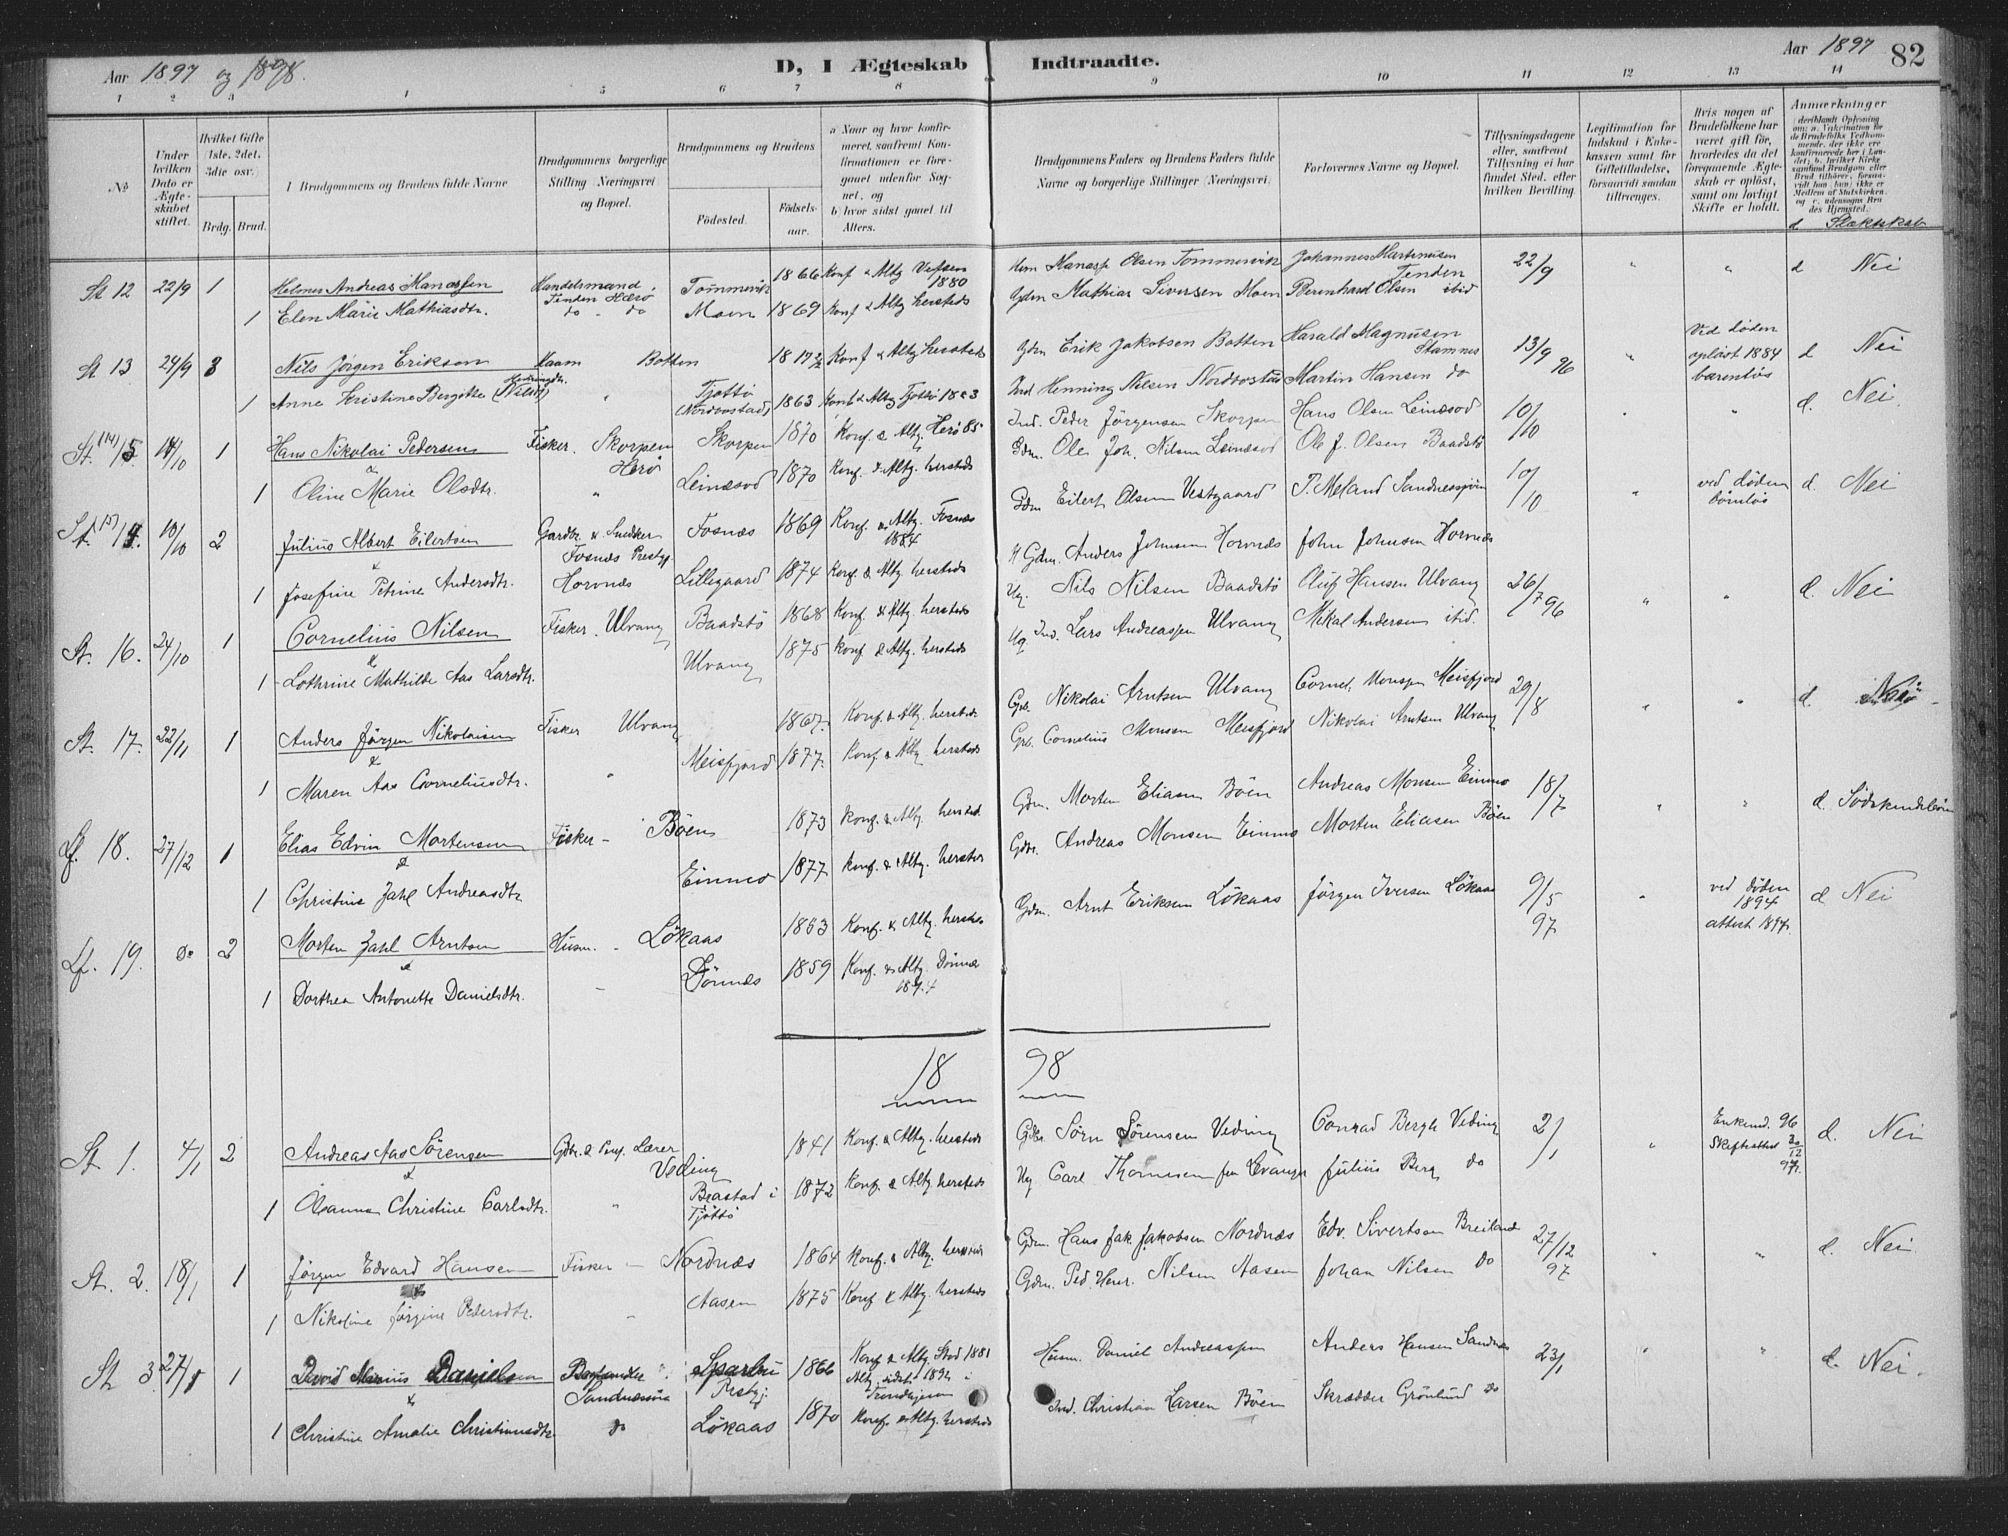 Aar 1897 og 1898.
D, I Ægteskab Indtraadte.
Aar 1897 82
1 2 3 4 5 6 7 8 9 10 11 12 13 14
No
Under hvilken Dato er Ægteskabet stiftet.
Hvilket Gifte (1ste, 2det, 3die osv.)
Brdg. Brud.
Brudgommens og Brudens fulde Navne
Brudgommens borgerlige Stilling (Næringsvei) og Bopæl.
Brudgommens og Brudens
Födested.
Födselsaar.
a Naar og hvor konfirmeret, saafremt Konfirmationen er foregaaet udenfor Sognet, og
b) hvor sidst gaaet til Alters.
Brudgommens Faders og Brudens Faders fulde Navne og borgerlige Stillinger (Næringsvei).
Forlovernes Navne og Bopæl.
Tillysningsdagene eller, saafremt Tillysning ei har fundet Sted, efter hvilken Bevilling.
Legitimation for Indskud i Enkekassen samt for Giftetilladelse, forsaavidt saadan tiltrænges.
Hvis nogen af Brudefolkene har været gift för, hvorledes da det foregaaende Ægteskab er oplöst, samt om lovligt Skifte er holdt.
Anmærkninger
d Slægtskab
St 12 22/9 1 Helmer Andreas Manassen Handelsmand Tinden Herö Tommervik 1866 Konf & Altg Vefsen 1880 Manasse Olsen Tommervik Johannes Martinusen Tenden 22/9 " " d Nei
1 Elen Marie Mathiasdtr. do " do Moen 1869 Konf & Altg hersteds Gdm Mathias Siversen Moen Bernhard Olsen ibid
St 13 24/9 3 Nils Jörgen Eriksen Botten Konf & Altg hersteds Gdm Erik Jakobsen Botten Harald Magnusen Stamnes 13/9 96 " Ved döden oplöst 1884 barnlös d Nei
1 Anne Kristine Bergitte " Tjøtto (Nordvostad) 1863 Konf & Altg Tjøttö Ind Henning Nilsen Nordvostad Martin Hansen do
St. (14) 14/10 1 Hans Nikolai Pedersen Fisker. Skorpen Herö Skorpen 1870 Konf. & Altg Herö 85 Ind. Peder Jörgensen Skorpen Hans Olsen Leinesvd 10/10 " " d. Nei
1 Oline Marie Olsdtr. " Leinesvd 1870 Konf. & Altg. hersteds Gdm. Ole Joh. Nilsen Leinesvd Ole J. Olsen Baadstö
St. (15) 10/10 2 Julius Albert Eilertsen Gardbr. & Snedker Fosnæs Prestgj Fosnæs 1869 Konf. & Altg. Fosnæs 1884 Gdm Eilert Olsen Vestgaard P. Meland Sandnessjöen 10/10 " ved döden börnlös d. Nei
1 Josefine Petrine Andersdtr. Horvnes Lillegaard 1874 Konf. & Altg. hersteds Gdm. Anders Johnsen Horvnes John Johnsen Horvnes
St. 16. 24/10 1 Cornelius Nilsen Fisker. Ulvang Baadstö 1868 Konf. & Altg. hersteds Ug. Nils Nilsen Baadstö Oluf Hansen Ulvang 26/7 96 " " d. Nei
1 Lothrine Mathilde Aas Larsdtr. Ulvang 1875 Konf & Altg. hersteds Ug Ind. Lars Andreassen Ulvang Mikal Andersen ibid.
St. 17. 22/11 1 Anders Jörgen Nikolaisen Fisker Ulvang 1867. Konf. & Altg. hersteds Gdb. Nikolai Arntsen Ulvang Cornel. Monsen Meisfjord 29/8 " " d Nei
1 Maren Aas Corneliusdtr. " Meisfjord 1877. Konf & Altg. hersteds Gdb. Cornelius Monsen Meisfjord Nikolai Arntsen Ulvang
Lf. 18. 27/12 1 Elias Edvin Mortensen Fisker - Böen 1873 Konf. & Altg. hersteds Gdm. Morten Eliasen Böen Andreas Monsen Einmo 18/7 " " d. Södskendebörn
1 Christine Zahl Andreasdtr Einmo 1877 Konf. & Altg. hersteds Gdbr. Andreas Monsen Einmo Morten Eliasen Böen
Lf. 19. Do 2 Morten Zahl Arntsen Husm. - Lökaas 1853 Konf. & Altg. hersteds Gdm. Arnt Eriksen Lökaas Jörgen Iversen Lökaas 9/5 97 " ved döden 1894 attest 1897. d Nei
1 Dorthea Antonette Danielsdtr. - Dönnes 1859 Konf. & Altg. Dönnæs
18 98
St. 1. 4/1 2 Andreas Aas Sörensen Gdbr. & Lærer Veding 1841 Konf. & Altg. hersteds Gdbr. Sörn Sörensen Veding Conrad Bergh Veding 2/1 " Enkemd. 96 Skifteattest 30/12 97. d. Nei
1 Oleanna Christine Carlsdtr. " Brastad i Tjøttö 1872 Konf. & Altg. hersteds Ug Carl Thomesen fra Levanger Julius Berg do
St. 2. 18/1 1 Jörgen Edvard Hansen Fisker - Nordnæs 1864 Konf. & Altg. hersteds Gdm. Hans Jak. Jakobsen Nordnæs Edv. Sivertsen Breiland 27/12 97 " " d. Nei
1 Nikoline Jörgine Pedersdtr. - Aasen 1875 Konf & Altg. hersteds Gdm. Ped. Henr. Nilsen Aasen Johan Nilsen Do
St. 3. 27/1 1 David Marius Danielsen Sandnæssjöen Sparbu Prestgj. 1866 Konf. & Altg. Stod 1881 Altg. sidst 1892 i Trondhjem Husm. Daniel Andreassen Anders Hansen Sandnes 23/1 " " d. Nei.
1 Christine Amalie Christiansdtr do Lökaas 1870 Konf. & Altg. hersteds Ind. Christian Larsen Böen Skrædder Grönlund do